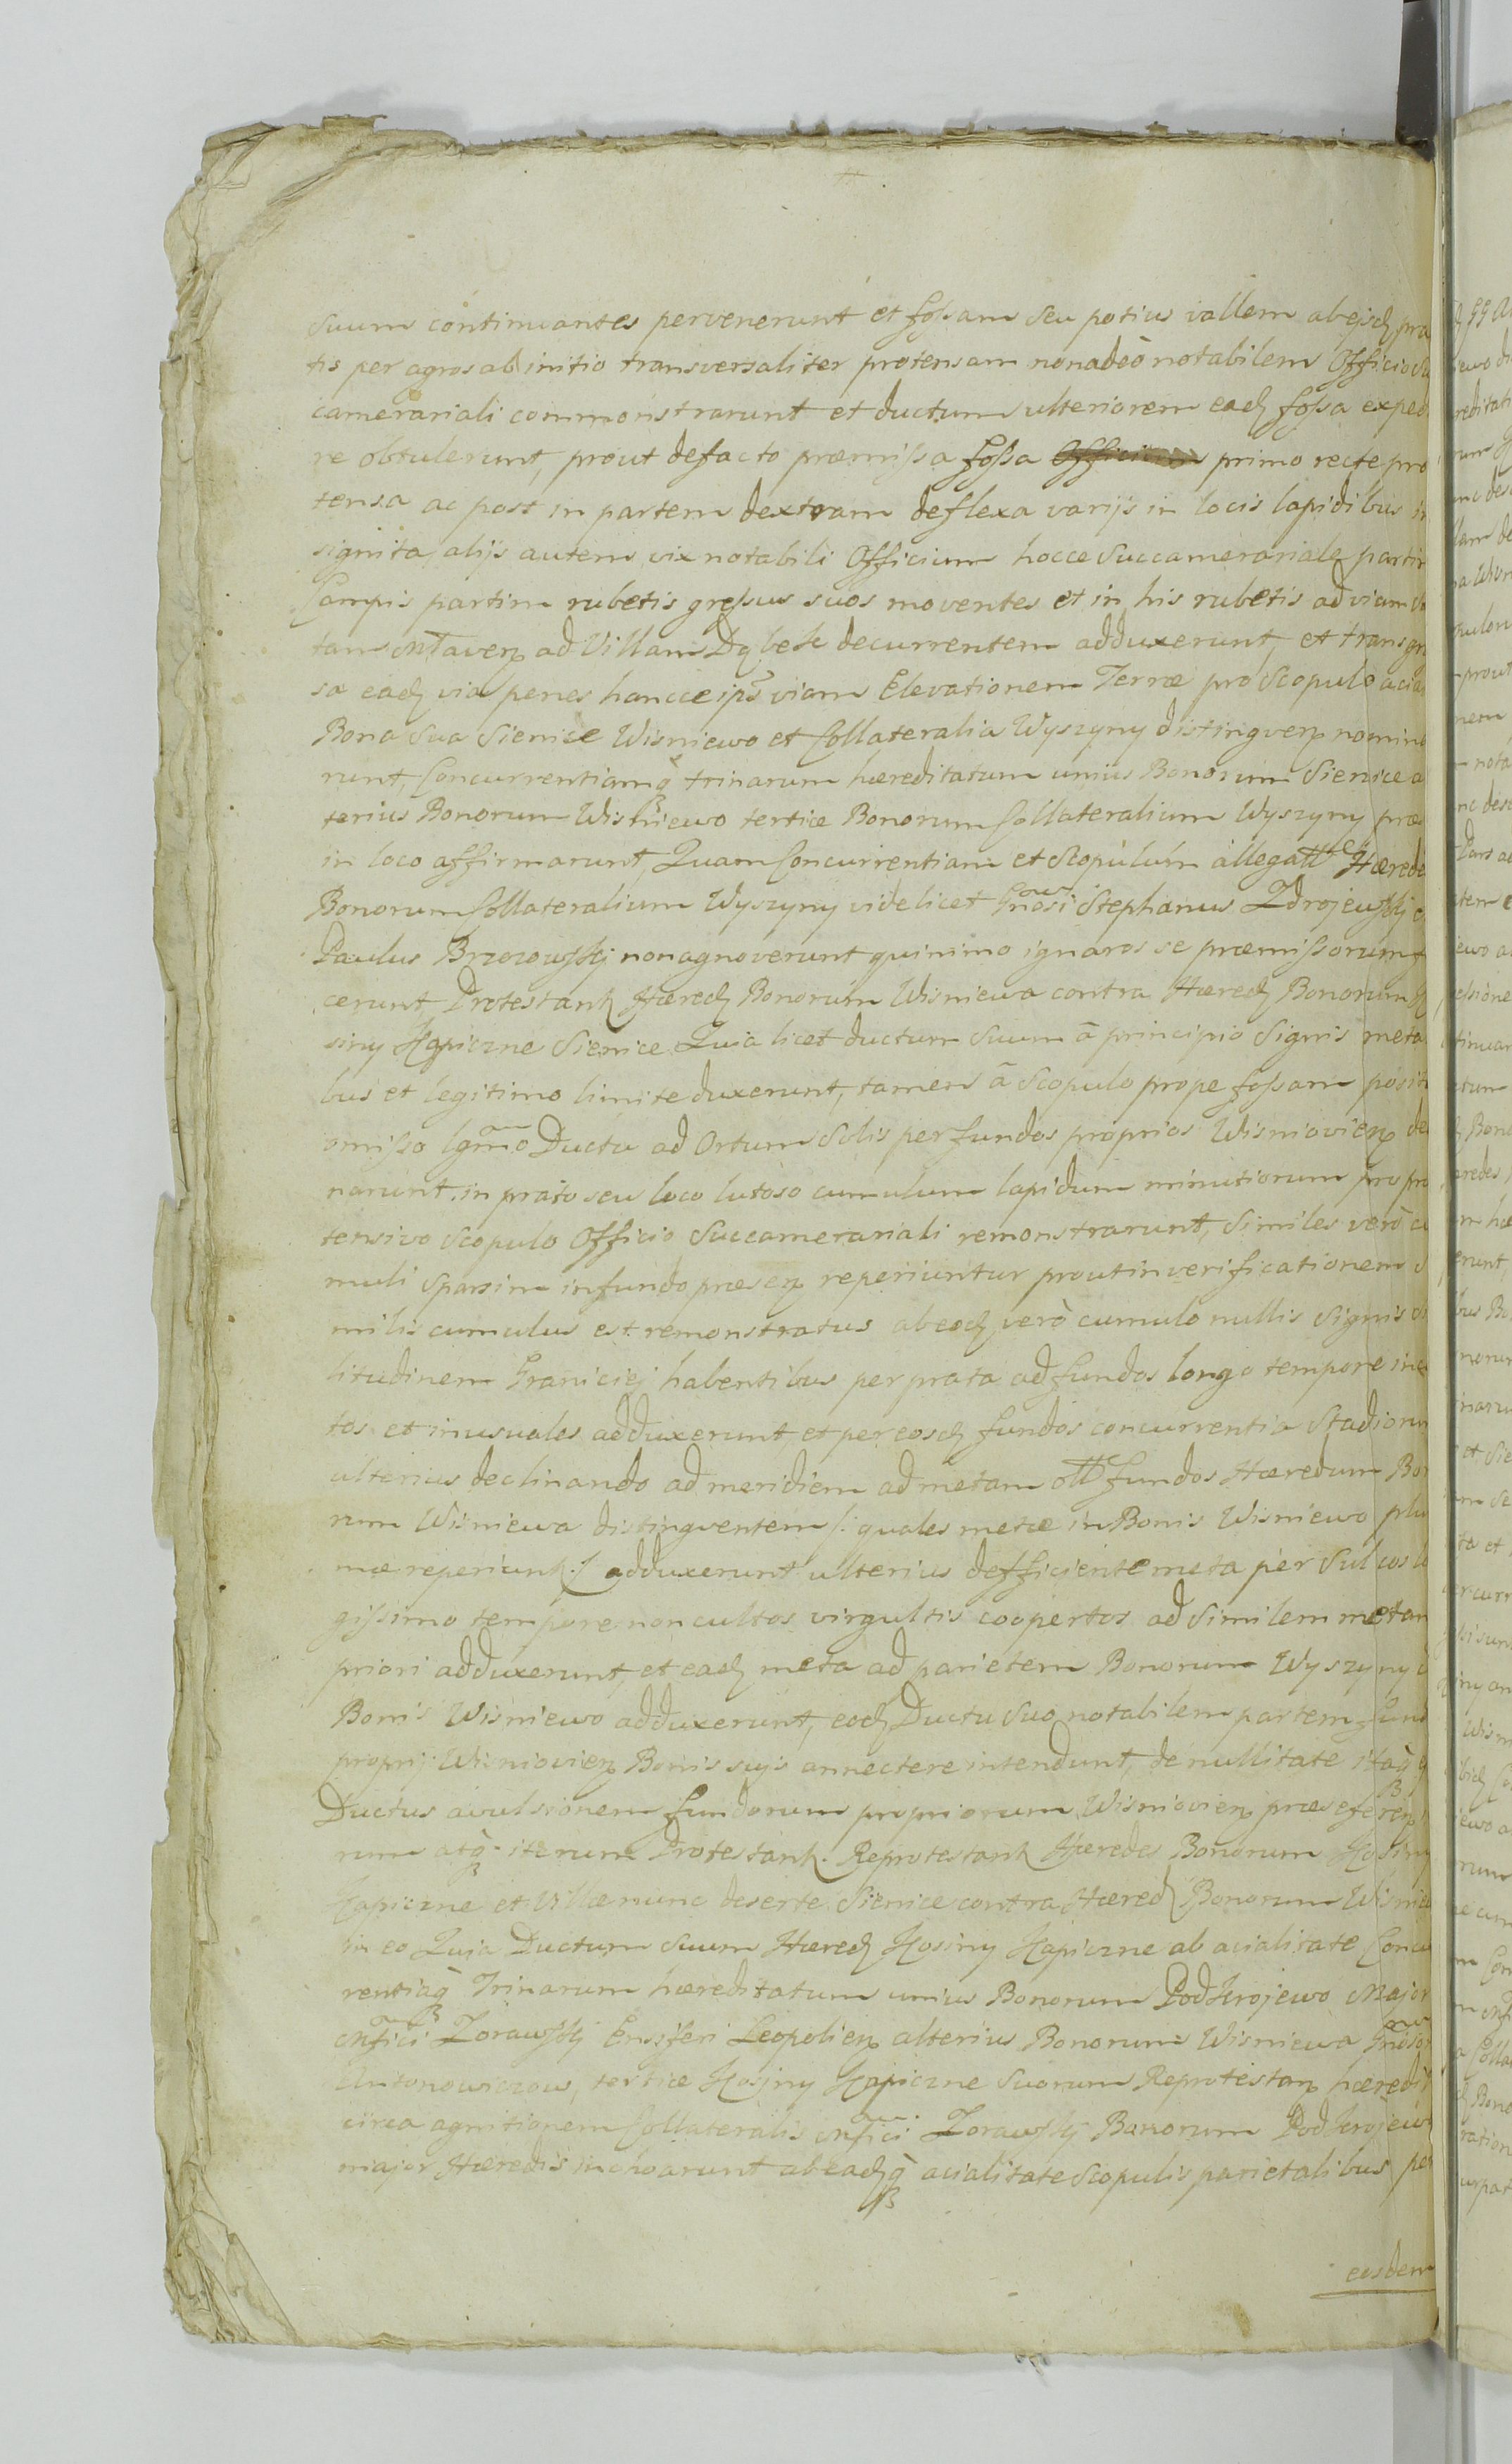 suum continuantes pervenerunt et fossam seu potius vallem ab ejsd pra
tis per agros ab initio transversaliter protensam non adeò notabilem Officio Su
camerariali commonstrarunt et ductum ulteriorem ead fossa exped
re obtulerunt, prout defacto præmissa fossa primo recte pro
tensa ac post in partem dextram deflexa varijs in locis lapidibus in
signita alijs autem vix notabili Officium hocce Succamerariale partim
Campis partim rubetis gressus suos moventes et in his rubetis ad viam
ad Villam Dąbek decurrentem adduxerunt, et transgre
sa ead via penes hancce ips viam Elevationem Terræ pro Scopulo acia
Bona sua Sienice Wisniewo et Collateralia Wyszyny distingven nomina
runt, Concurrentiamq trinarum hæreditatum unius Bonorum Sienice a
terius Bonorum Wisniewo tertiæ Bonorum Collateralium Wyszyny præ
in loco affirmarunt, Quam Concurrentiam et Scopulum allegatt Hærede
Bonorum Collateralium Wyszyny videlicet Gnosi Stephanus Zdrojewskj e
Paulus Brzozowskj non agnoverunt quinimo ignaros se præmissorum f
cerunt, Protestank Hæred Bonorum Wisniewa contra Hæred Bonorum
siny Kapiczne Sienice Quia licet ductum suum à principio signis meta
bus et legitimo limite duxerunt, tamen à Scopulo prope fossam posit
omisso lgmo Ductu ad Ortum Solis per fundos proprios Wisniovien de
narunt, in prato seu loco lutoso cumulum lapidum minutiorum pro pre
tensivo Scopulo Officio Succamerariali remonstrarunt, Similes verò cu
muli sparsim in fundo præsen reperiuntur prout in verificationem s
milis cumulus est remonstratus ab eod verò cumulo nullis Signis
litudinem Graniciej habentibus per prata ad fundos longo tempore incu
tos et inusuales adduxerunt, et per eosd fundos concurrentia Stadiorum
ulterius declinando ad meridiem ad metam ott fundos Hæredum Bo
rum Wisniewa distingventem /: quales metæ in Bonis Wisniewo plu
mæ reperiunk :/ adduxerunt ulterius defficiente meta per Sulcos lo
gissimo tempore non cultos virgultis coopertos ad similem metam
priori adduxerunt, et ead meta ad parietem Bonorum Wyszyny c
Bonis Wisniewo adduxerunt, eod Ductu suo notabilem partem fund
proprij Wisniovien Bonis sujs annectere intendunt, de nullitate itaq
Ductus avulsionem fundorum propriorum Wisniovien præseferen
rum atq iterum Protestank. Reprotestank Hæredes Bonorum Kosiny
Kapiczne et Villæ nunc desertæ Sienice contra Hæred Bonorum Wisnie
in eo Quia Ductum suum Hæred Kosiny Kapiczne ab acialitate Concu
rentiaq Trinarum hæreditatum unius Bonorum Podkrojewo Major
Mfici Zorawskj Ensiferi Leopolien alterius Bonorum Wisniewa Gnosor
Antonowiczow, tertiæ Kosiny Kapiczne suorum Reprotestan hæredit
circa agnitionem Collateralis Mfici Zorawskj Bonorum Podkrojew
major Hæredis inchoarunt ab eadq acialitate Scopulis parietalibus per
eosdem